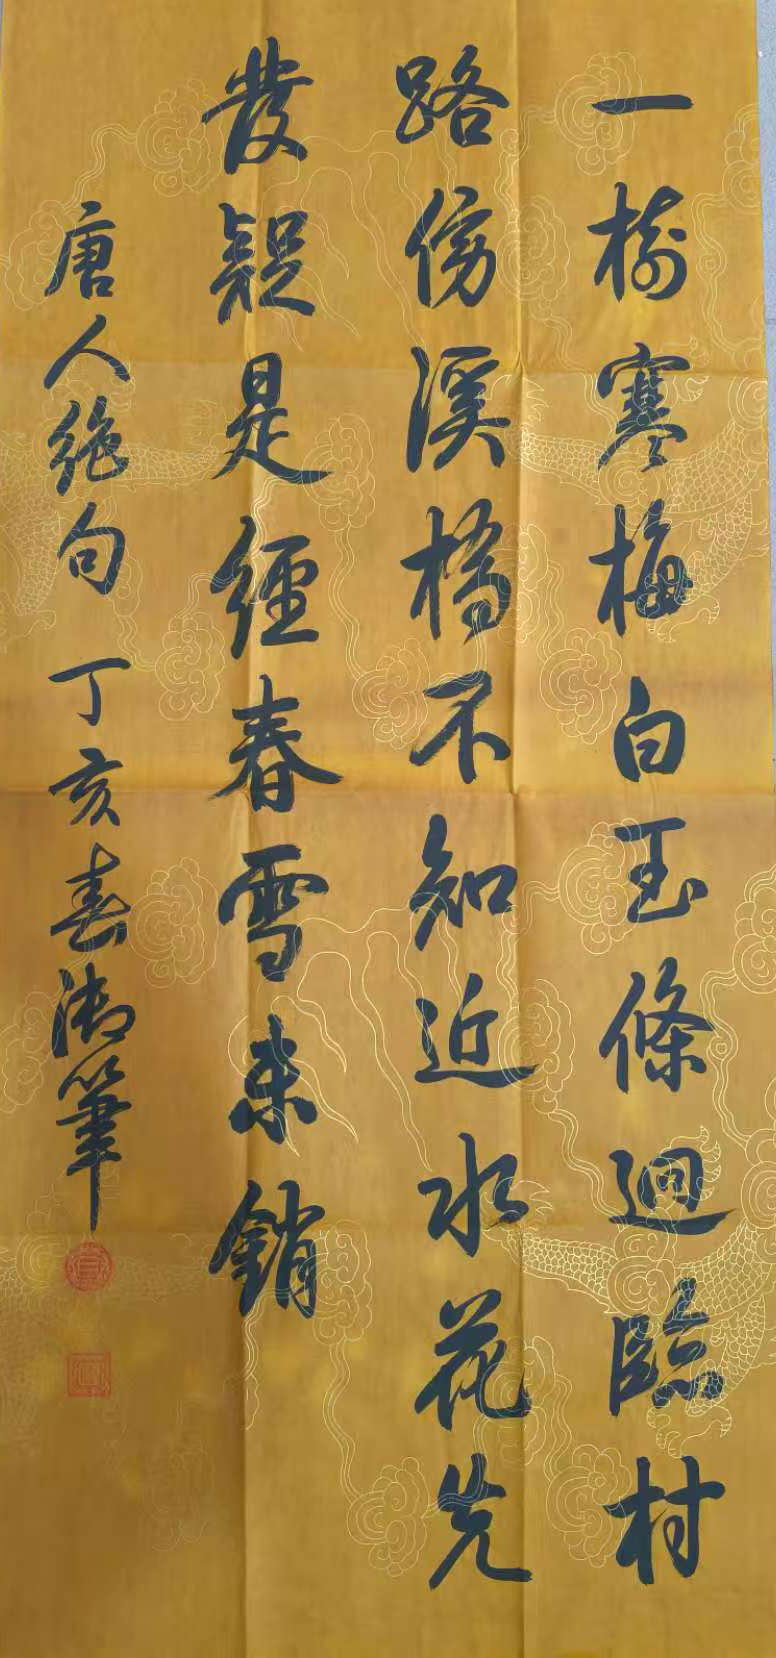 一樹寒梅白玉條迴臨村
路傍溪橋不知近水花先
發疑是經春雪未銷
唐人絶句 丁亥春御筆